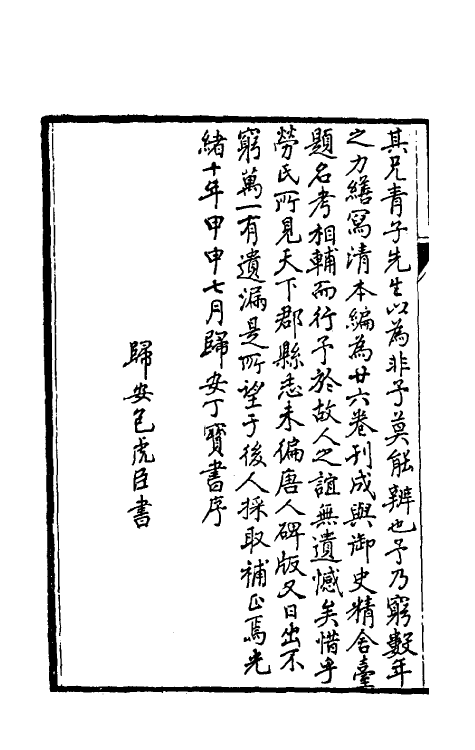 其兄青子先生以為非予莫能辨也予乃窮數年
之力繕寫清本編為廿六卷刊成與御史精舍臺
題名考相輔而行予於故人之誼無遺憾矣惜乎
勞氏所見天下郡縣志未徧唐人碑版又日出不
窮萬一有遺漏是所望于後人採取補正焉光
緒十年甲申七月歸安丁寶書序
歸安包虎臣書